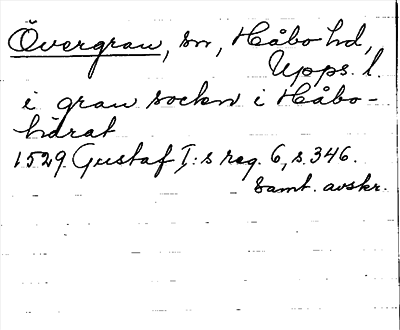 Övergran, sn, Håbo hd,
Upps. l.
i gran sockn i Håbo-
härat
1529. Gustaf I:s reg. 6, s. 346.
Samt. avskr.